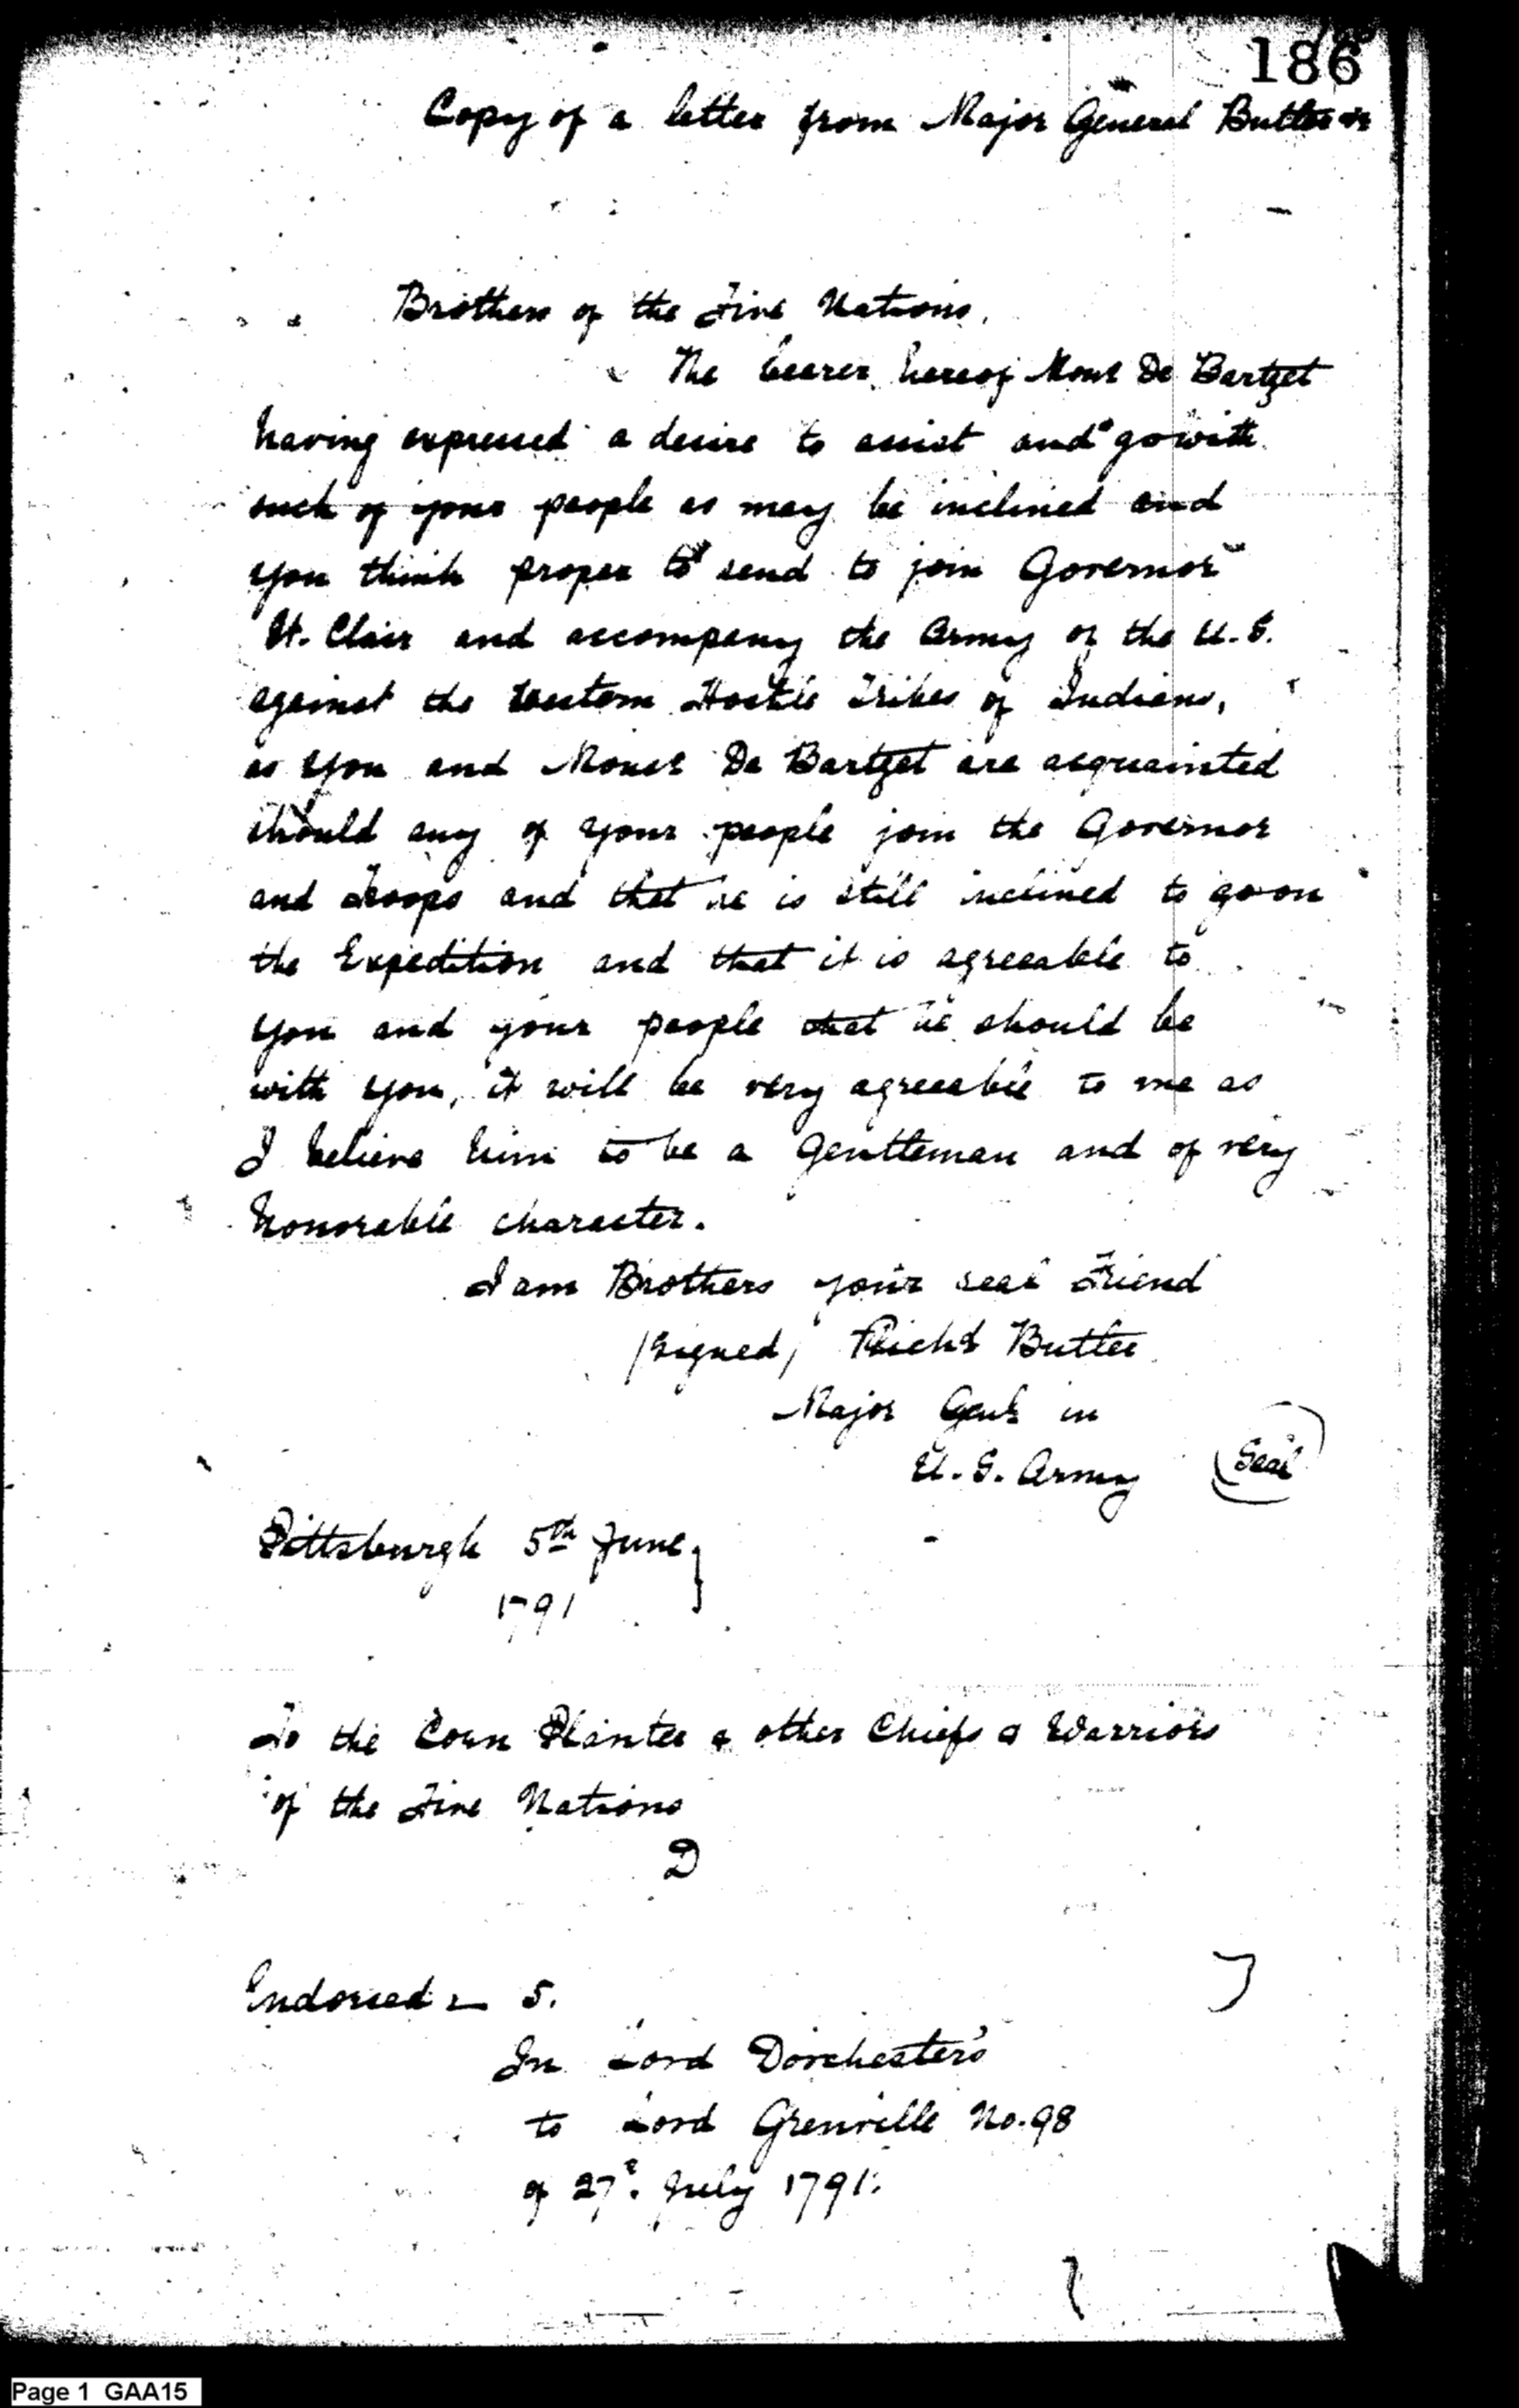 186
Copy of a letter from Major General Butler &c
Brothers of the Five Nations,
The bearer hereof Monsr De Bartzet
having expressed a desire to assist and go with
such of your people as may be inclined and
you think proper to send to join Governor
St. Clair and accompany the Army of the U.S.
against the Western Hostile Tribes of Indians,
as you and Monsr De Bartzet are acquainted
should any of your people join the Governor
and Troops and that he is still inclined to go on
the Expedition and that it is agreeable to
you and your people that he should be
with you, it will be very agreeable to me as
I believe him to be a gentleman and of very
honorable character.
I am Brothers your real Friend
/signed/ Richd Butler
Major Genl in
U.S. Army
Seal
Pittsburgh 5th June }
1791
To the Corn Planter & other Chiefs & Warriors
of the Five Nations
D
Endorsed - 5.
In Lord Dorchester's
to Lord Grenville No. 98
of 27th July 1791.
Page 1 GAA15